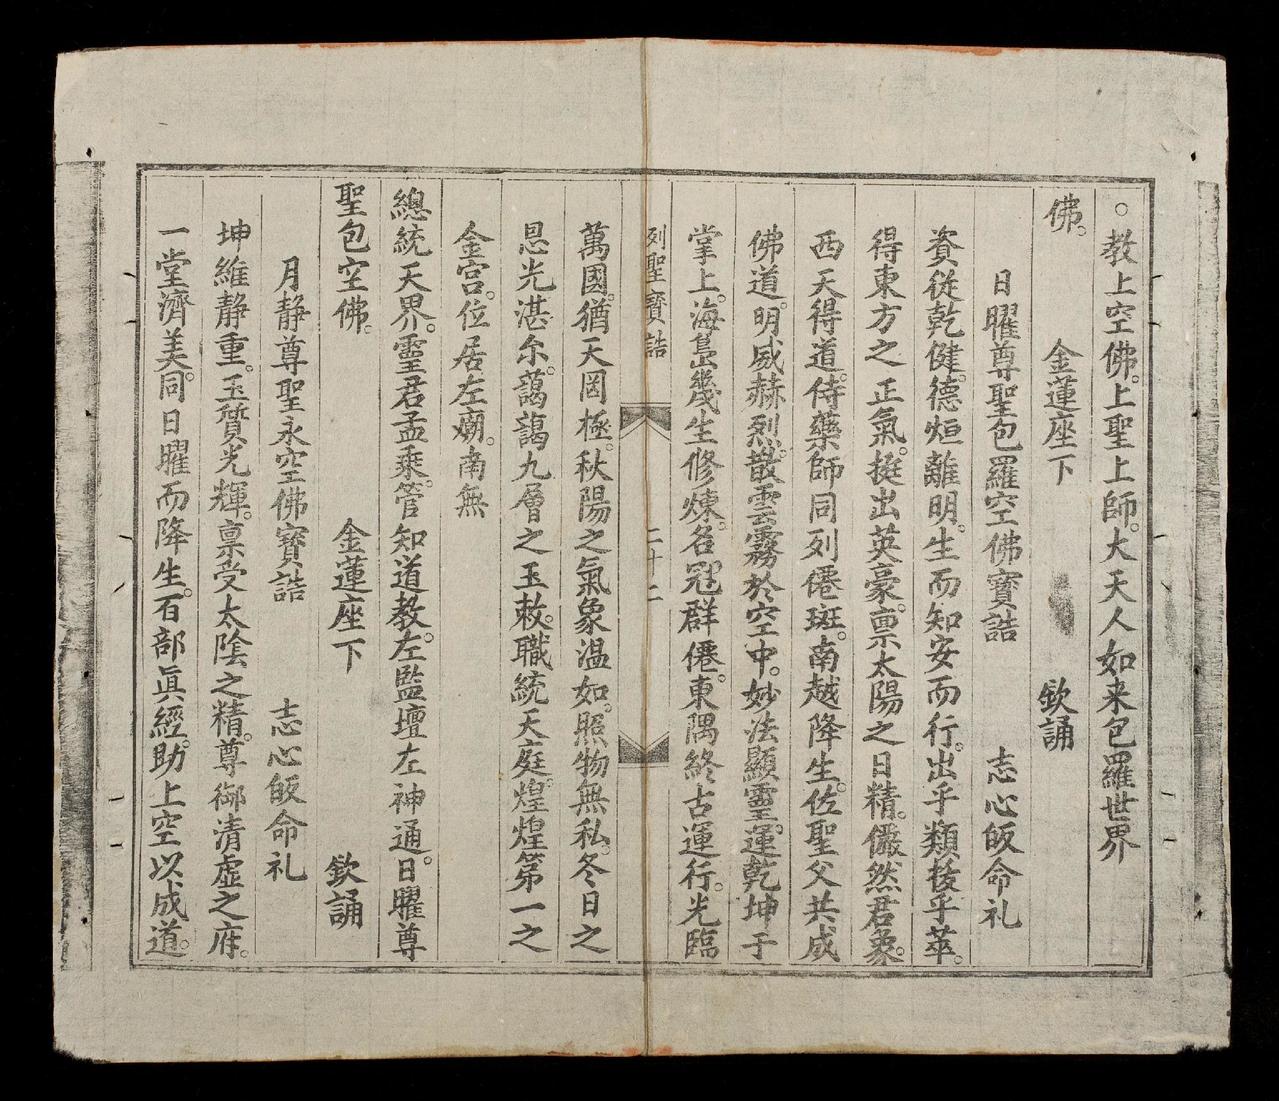 。教上空佛。上聖上師。大天人如来包羅世界
佛。 金蓮座下 欽誦
日曜尊聖包羅空佛寳誥 志心皈命礼
資從乾健。德烜離明。生而知安而行。出乎類拔乎萃。
得東方之正氣。挺出英豪。禀太陽之日精。儼然君象。
西天得道。侍藥師同列僊班。南越降生。佐聖父共成
佛道。明威赫烈。散雲霧於空中。妙法顯靈。運乾坤于
掌上。海島幾生修煉。名冠群僊。東隅終古運行。光臨
列聖寳誥 二十二
萬國。猶天罔極。秋陽之氣象温如。照物無私。冬日之
恩光湛尒。藹藹九層之玉敕。職統天庭。煌煌第一之
金宮。位居左廟。南無
總統天界。靈君孟乘。管知道教。左監壇左神通。日曜尊
聖包空佛。 金蓮座下 欽誦
月靜尊聖永空佛寳誥 志心皈命礼
坤維静重。玉質光輝。禀受太陰之精。尊御清虚之府。
一堂濟美。同日曜而降生。石部眞經。助上空以成道。